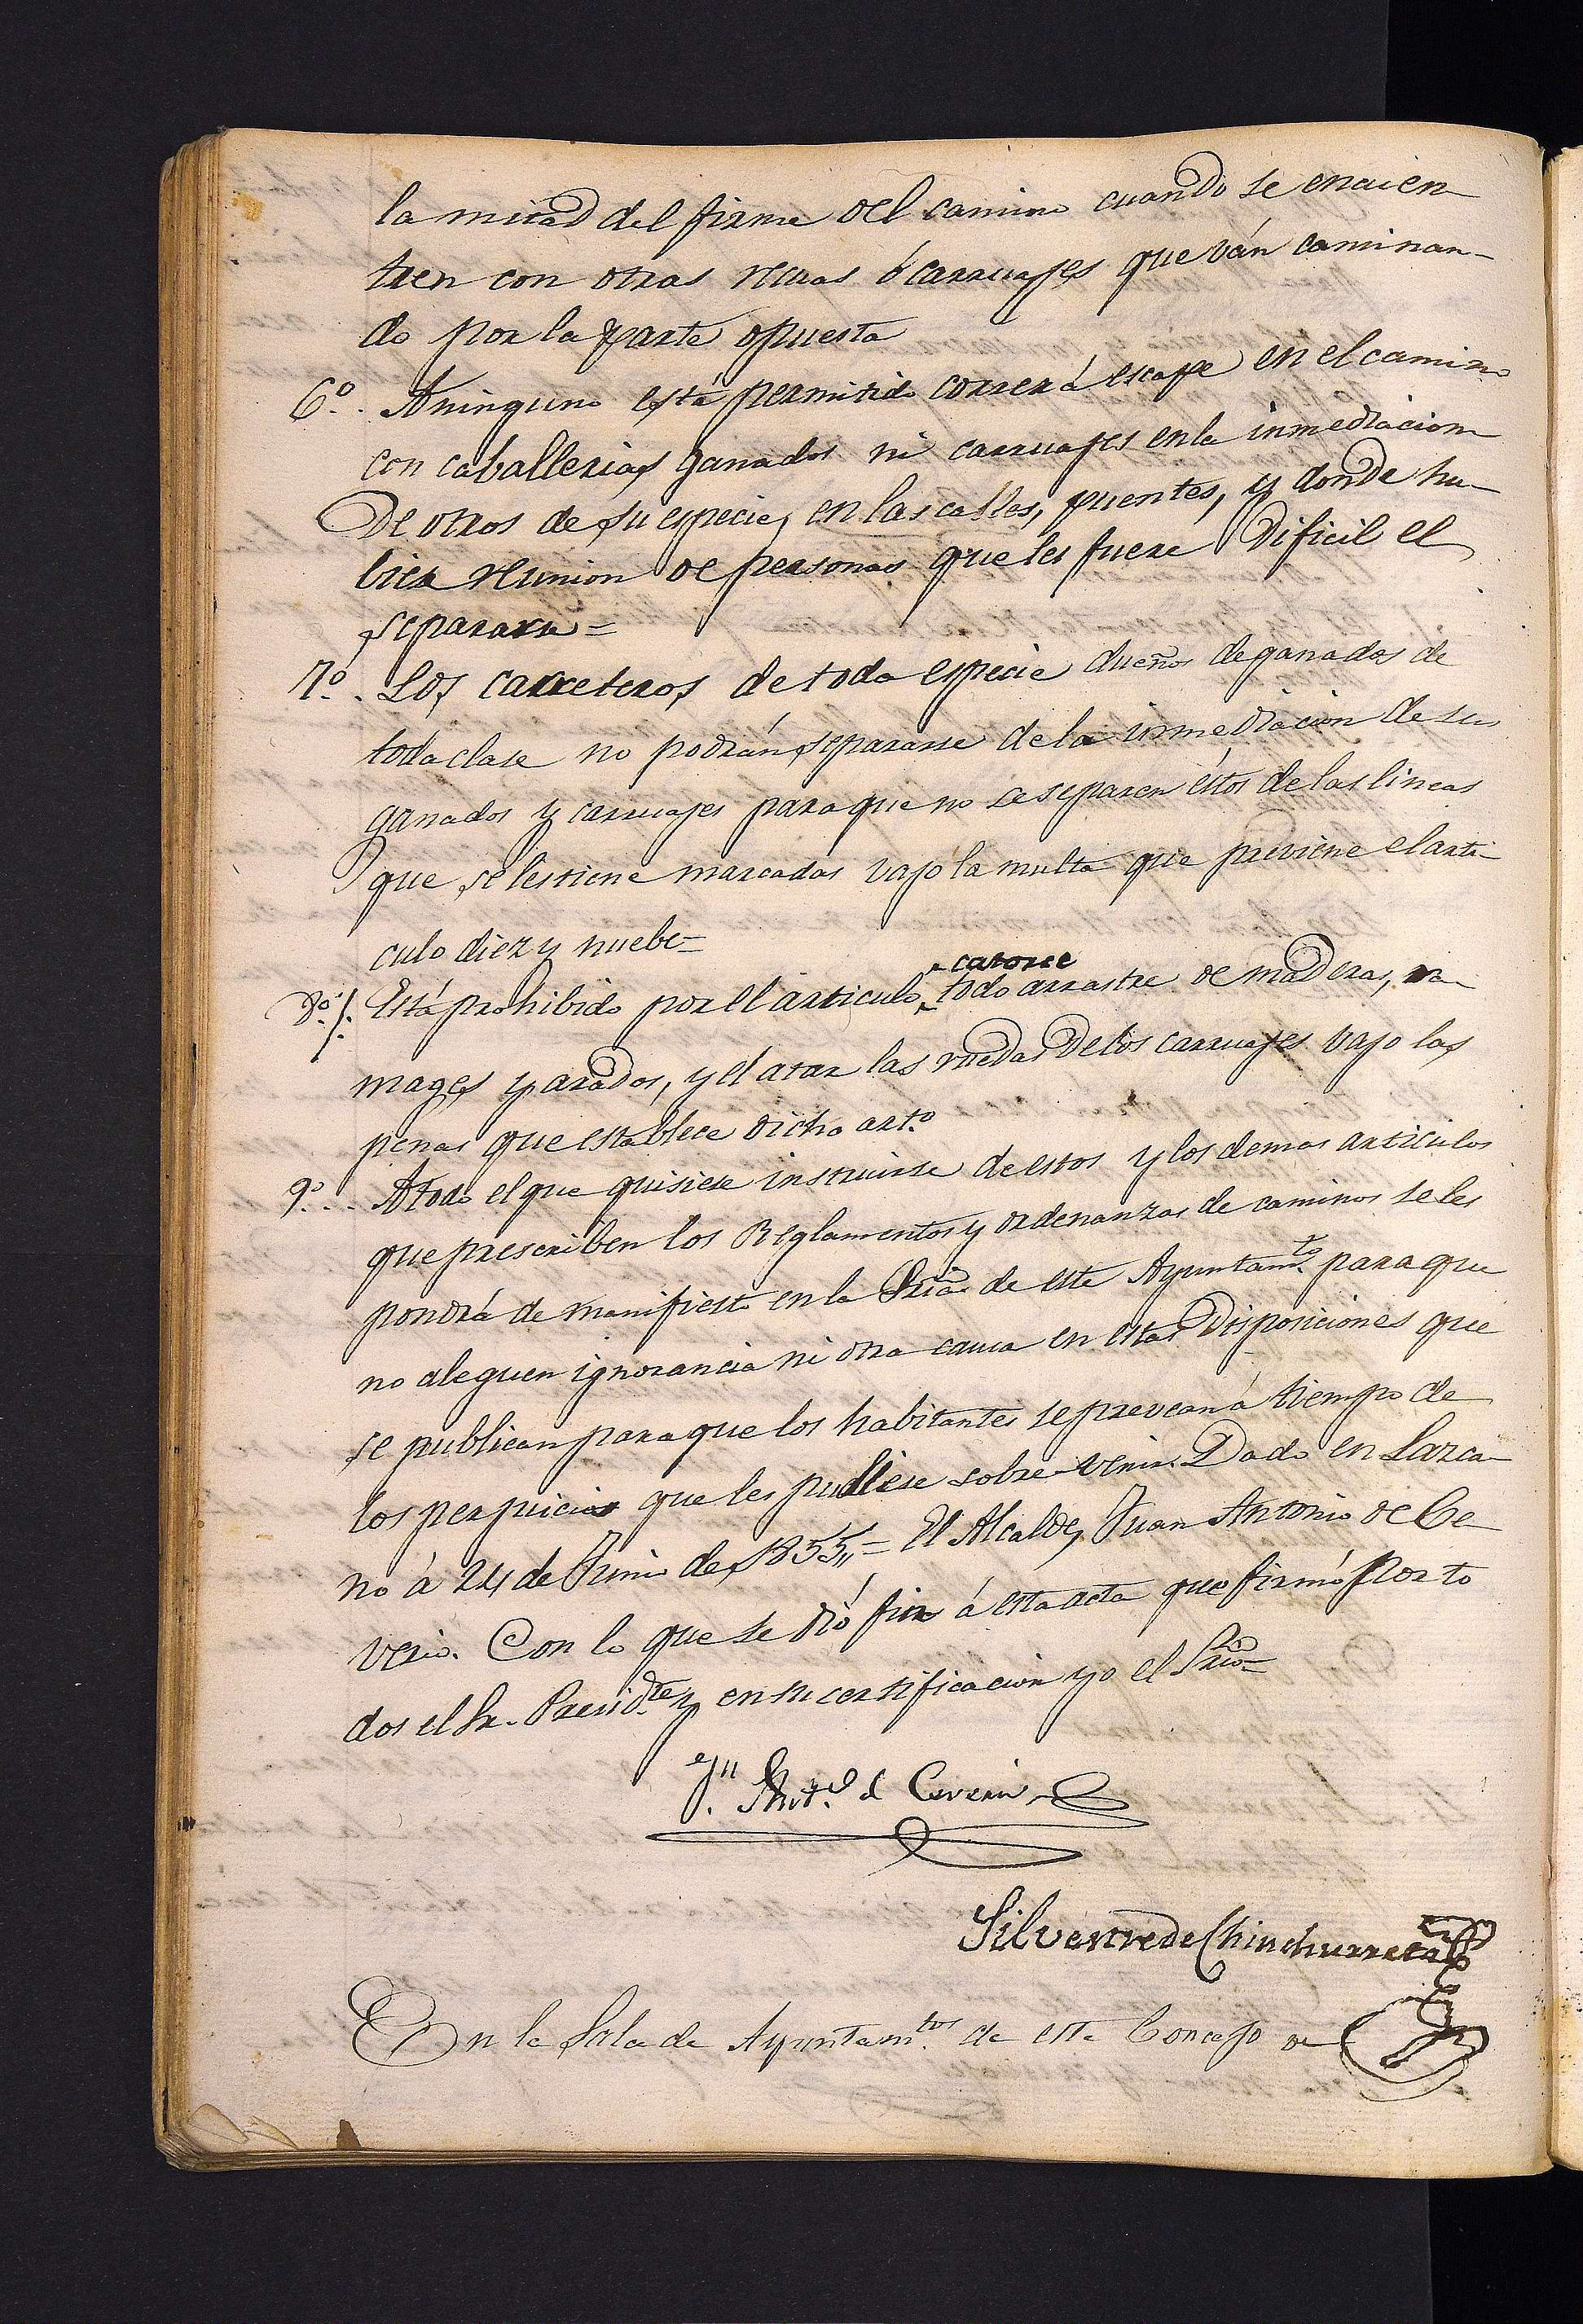 la mitad del firme del camino cuando se encuen
tren con otras recuas ó carruajes que ván caminan-
do por la parte opuesta
6º. A ninguno está permitido correr á escape en el camino
con caballerias ganados ni carruajes en la inmediacion
de otros de su especie, en las calles, puentes, y donde hu-
bier reunion de personas que les fuere dificil el
separarse=
7º. Los carreteros de toda especie dueños de ganados de
toda clase no podrán separarse de la inmediacion de su
ganados y carruajes para que no se separen éstos de las lineas
que se les tiene marcadas vajo la multa que previene el arti-
culo diez y nuebe=
catorce
8º. Está prohibido por el articulo todo arrastre de maderas, ra-
mages y arados, y el atar las ruedas de los carruajes vajo las
penas que establece dicho artº
9º... A todo el que quisiese instruirse de estos y los demas articulos
que prescriben los Reglamentos y ordenanzas de caminos se les
pondrá de manifiesto en la Sria de este Ayuntamto para que
no aleguen ignorancia ni otra causa en estas disposiciones que
se publican para que los habitantes se prevean á tiempo de
los perjuicios que les pudiese sobre-venir. Dado en Lazca-
no á 24 de Junio de 1855,,= El Alcalde, Juan Antonio de Ce-
verio. Con lo que se dió fin á esta acta que firmó por to
dos el Sr. Presidte y en su certificacion yo el Srio=
Jn Antº d Ceverio
Silvestre de Chinchurreta
En la Sala de Ayuntamtos de este Concejo de